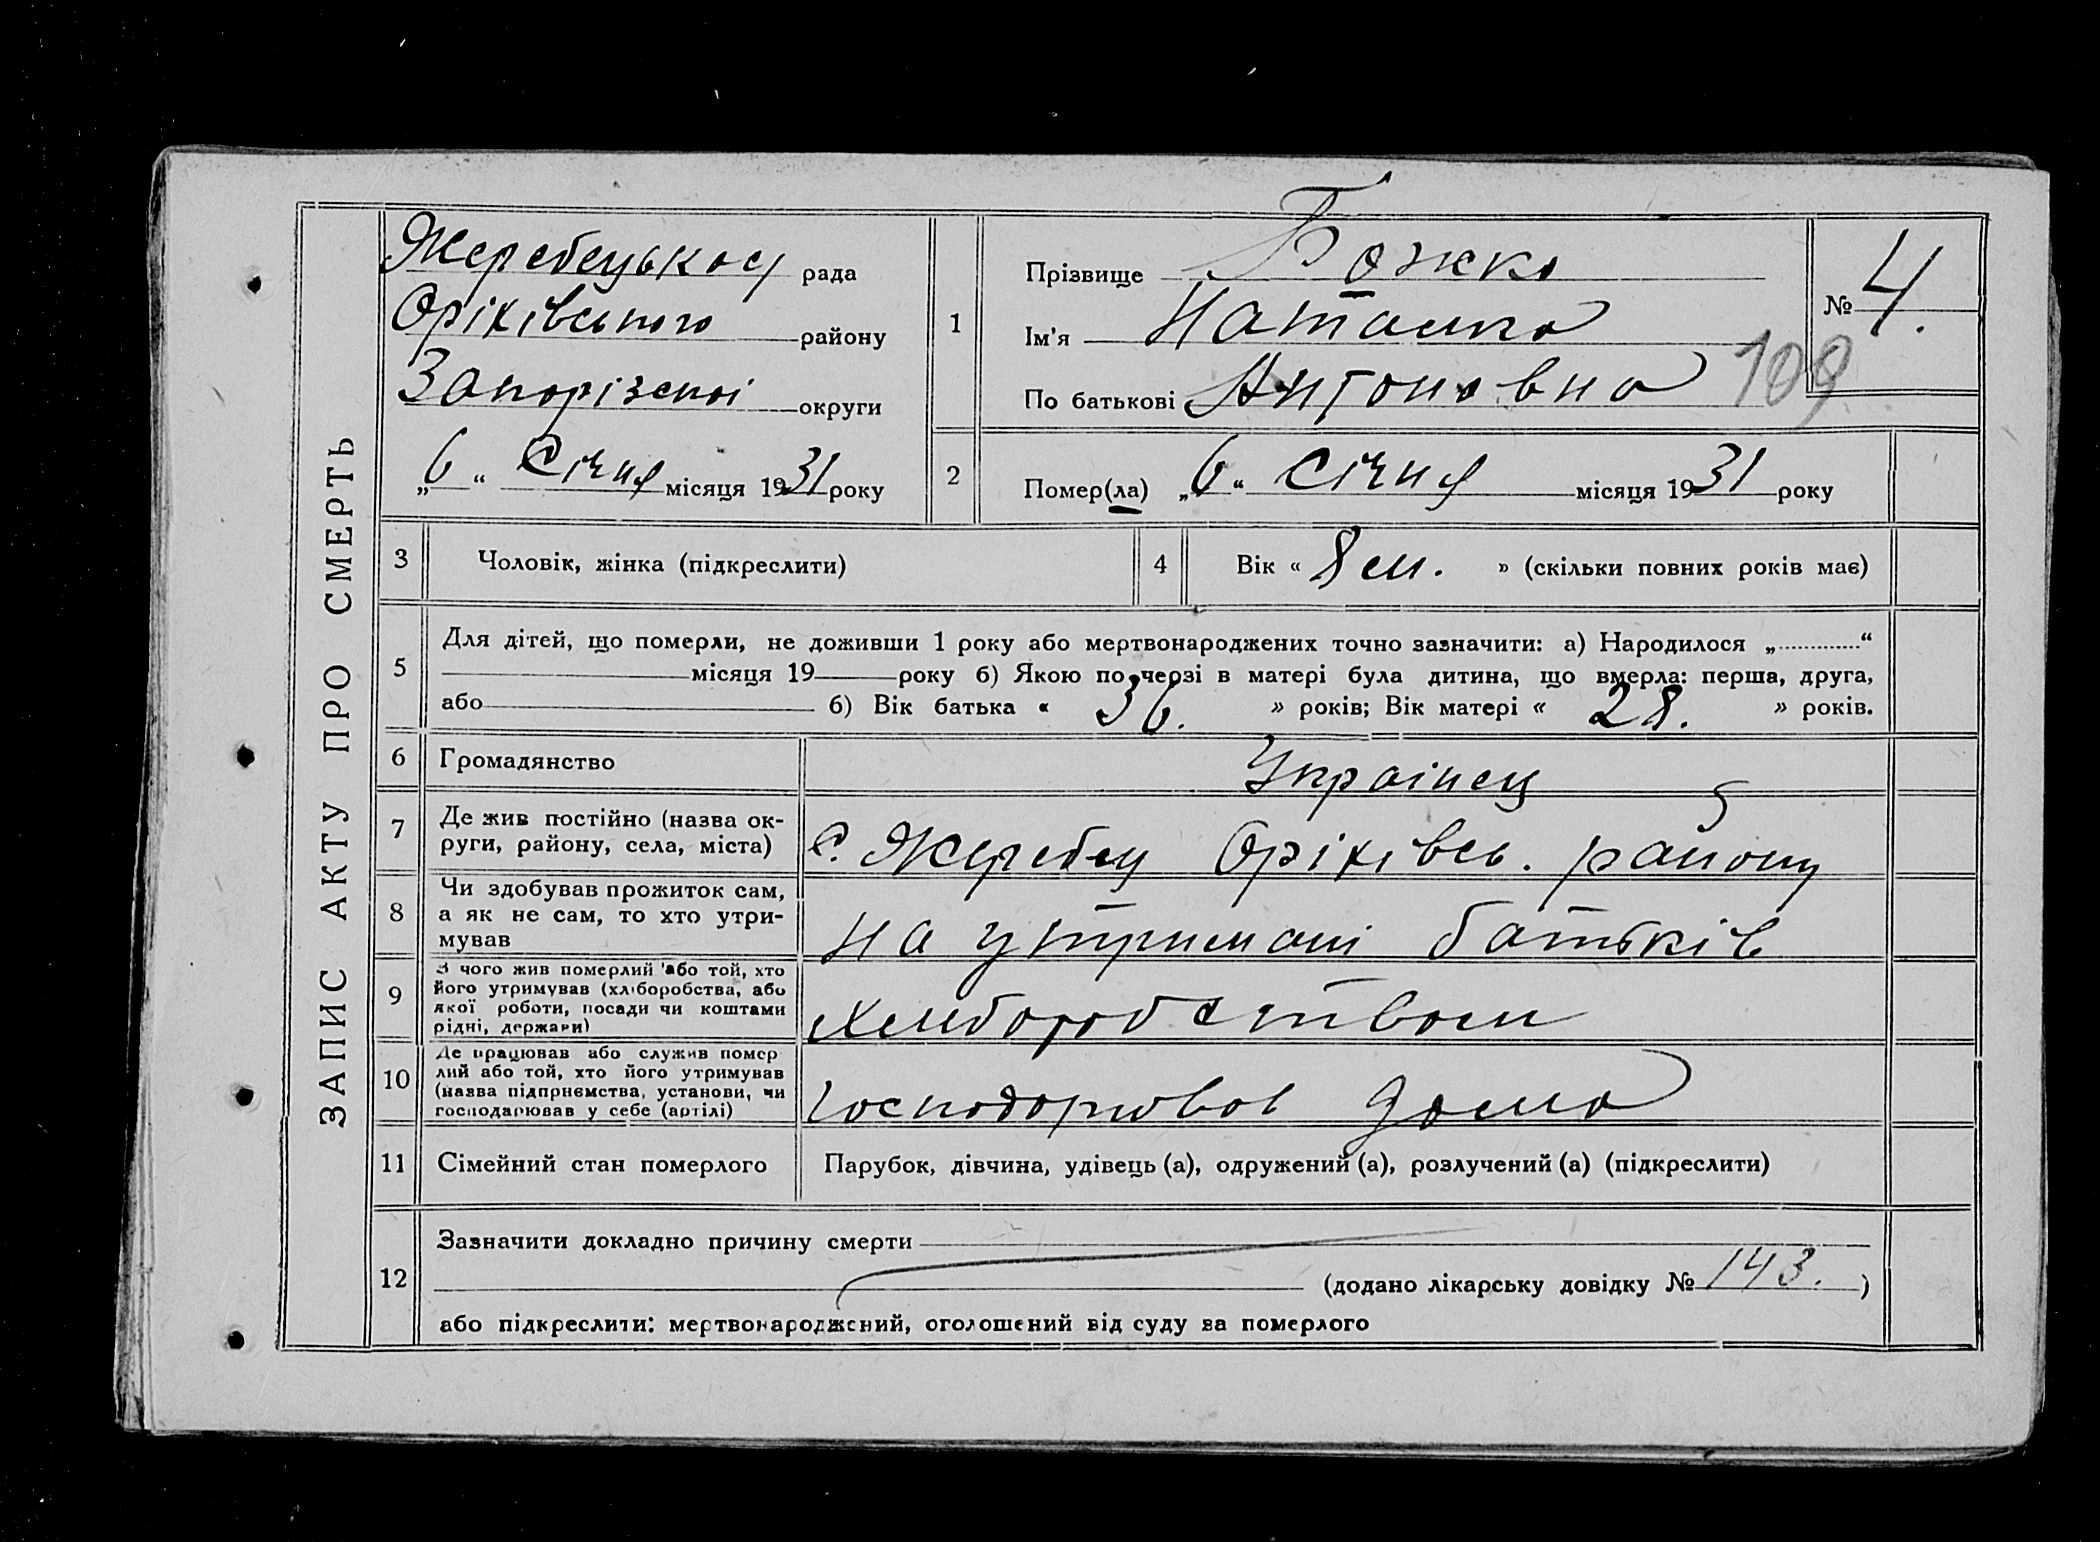 ЗАПИС АКТУ ПРО СМЕРТЬ
Жеребецької рада
Оріхівського району
Запорізької округи
„6“ Січня місяця 1931 року
1
Прізвище Божко
Ім'я Наталка
По батькові Антоновна
№ 4.
109
2
Помер(ла) „6“ Січня місяця 1931 року
3 Чоловік, жінка (підкреслити)
4 Вік « 8 м. » (скільки повних років має)
5 Для дітей, що померли, не доживши 1 року або мертвонароджених точно зазначити: а) Народилося „ “
місяця 19 року б) Якою по черзі в матері була дитина, що вмерла: перша, друга,
або б) Вік батька « 36. » років; Вік матері « 28. » років.
6 Громадянство Українец
7 Де жив постійно (назва ок-
руги, району, села, міста) с. Жеребец Оріхівсь. району
8 Чи здобував прожиток сам,
а як не сам, то хто утри-
мував на утримані батьків
9 З чого жив померлий або той, хто
його утримував (хліборобства, або
якої роботи, посади чи коштами
рідні, держави) хлиборобством
10 Де працював або служив помер
лий або той, хто його утримував
(назва підприємства, установи, чи
господарював у себе (артілі) господорював дома
11 Сімейний стан померлого Парубок, дівчина, удівець (а), одружений (а), розлучений (а) (підкреслити)
12 Зазначити докладно причину смерти
(додано лікарську довідку № 143. )
або підкреслити: мертвонароджений, оголошений від суду за померлого